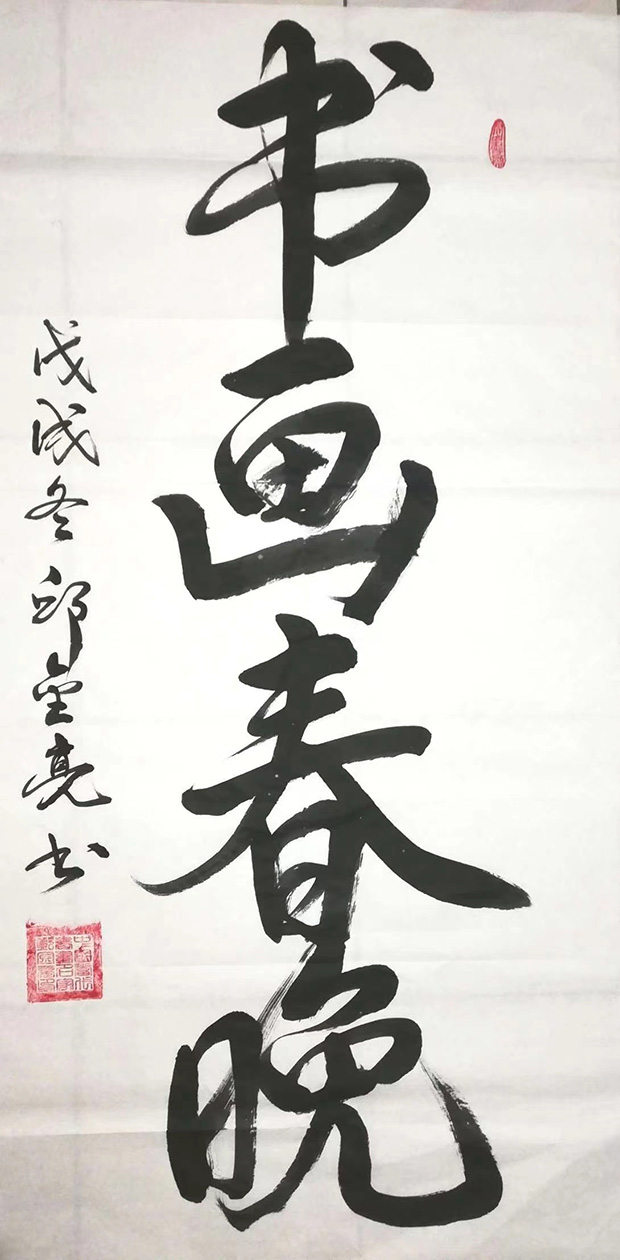 书画春晚
戊戌冬邱金亮书